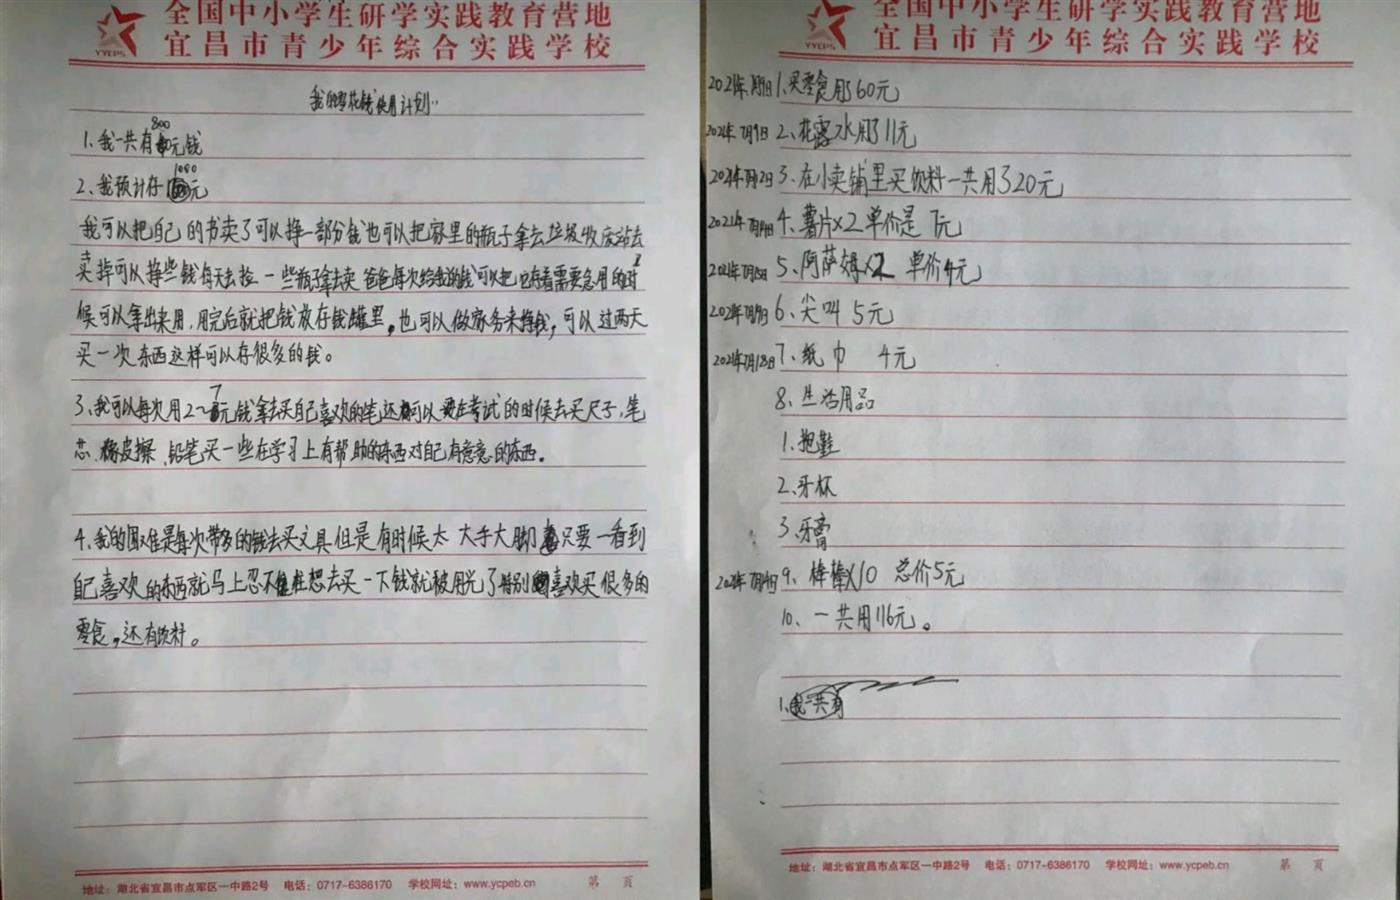 全国中小学生研学实践教育营地
宜昌市青少年综合实践学校
YYCPS
我的零花钱使用计划
1、我一共有800元钱
2、我预计存1000元
我可以把自己的书卖了可以挣一部分钱也可以把家里的瓶子拿去垃圾收废站去
卖掉可以挣些钱每天去捡一些瓶子拿去卖爸爸每次给我的钱可以把它存着需要急用的时
候可以拿出来用,用完后就把钱放存钱罐里,也可以做家务来挣钱,可以过两天
买一次东西这样可以存很多的钱。
3、我可以每次用2~7元钱拿去买自己喜欢的笔还可以在考试的时候去买尺子,笔
芯、橡皮擦、铅笔买一些在学习上有帮助的东西对自己有意意的东西。
4、我的困难是每次带多的钱去买文具但是有时候太大手大脚只要一看到
自己喜欢的东西就马上忍不住想去买一下钱就被用光了特别喜欢买很多的
零食,还有饮料。
地址:湖北省宜昌市点军区一中路2号 电话:0717-6386170 学校网址:www.ycpeb.cn 第 页
全国中小学生研学实践教育营地
宜昌市青少年综合实践学校
YYCPS
1、买零食用了60元
2021年7月9日 2、花露水用了11元
3、在小卖铺里买饮料一共用了20元
4、薯片×2 单价是 元
5、阿萨姆×2 单价4元
6、尖叫 5元
2021年7月18日 7、纸巾 4元
8、生活用品
1、拖鞋
2、牙杯
3、牙膏
9、棒棒×10 总价5元
10、一共用116元。
1、我一共有
地址:湖北省宜昌市点军区一中路2号 电话:0717-6386170 学校网址:www.ycpeb.cn 第 页